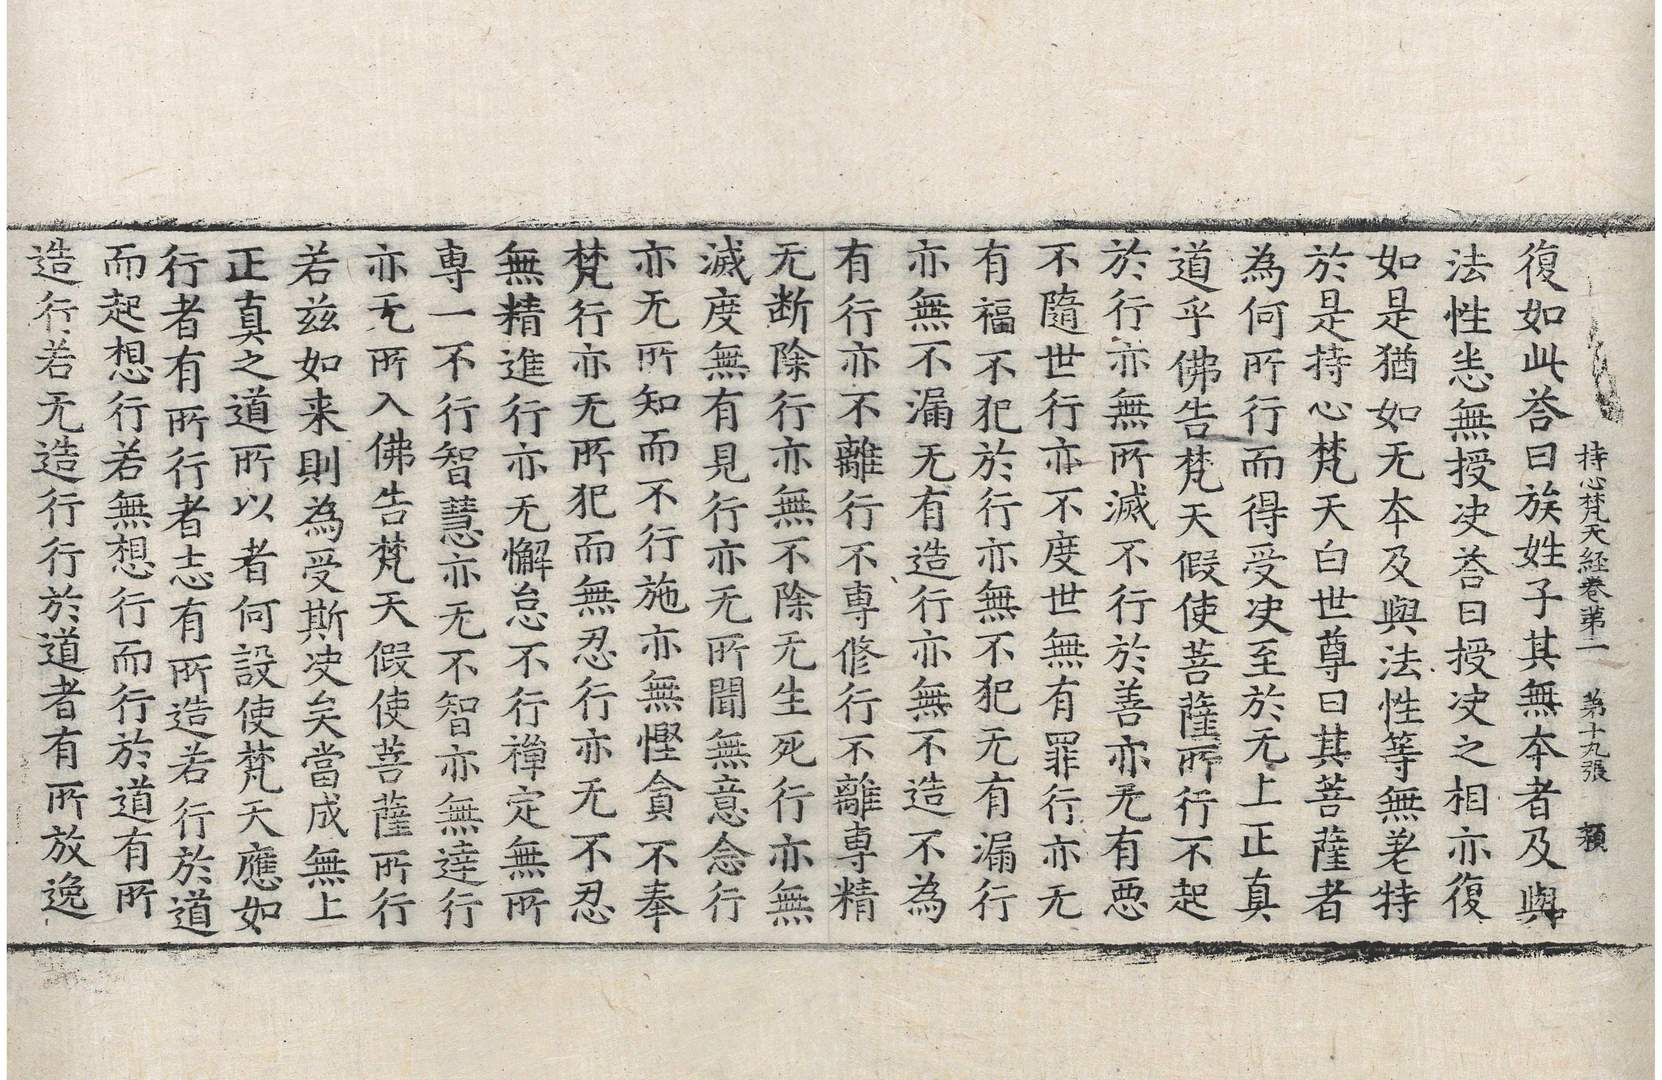 持心梵天經卷第二　第十九張　頛
復如此荅曰族姓子其無夲者及與
法性恙無授决荅曰授决之相亦復
如是猶如无夲及與法性等無差特
於是持心梵天白世尊曰其菩薩者
為何所行而得受决至於无上正真
道乎佛告梵天假使菩薩所行不起
於行亦無所滅不行於善亦无有惡
不隨世行亦不度世無有罪行亦无
有福不犯於行亦無不犯无有漏行
亦無不漏无有造行亦無不造不為
有行亦不離行不專修行不離專精
无断除行亦無不除无生死行亦無
滅度無有見行亦无所聞無意念行
亦无所知而不行施亦無慳貪不奉
梵行亦无所犯而無忍行亦无不忍
無精進行亦无懈怠不行禅定無所
専一不行智慧亦无不智亦無達行
亦无所入佛告梵天假使菩薩所行
若兹如来則為受斯决矣當成無上
正真之道所以者何設使梵天應如
行者有所行者志有所造若行於道
而起想行若無想行而行於道有所
造行若无造行行於道者有所放逸